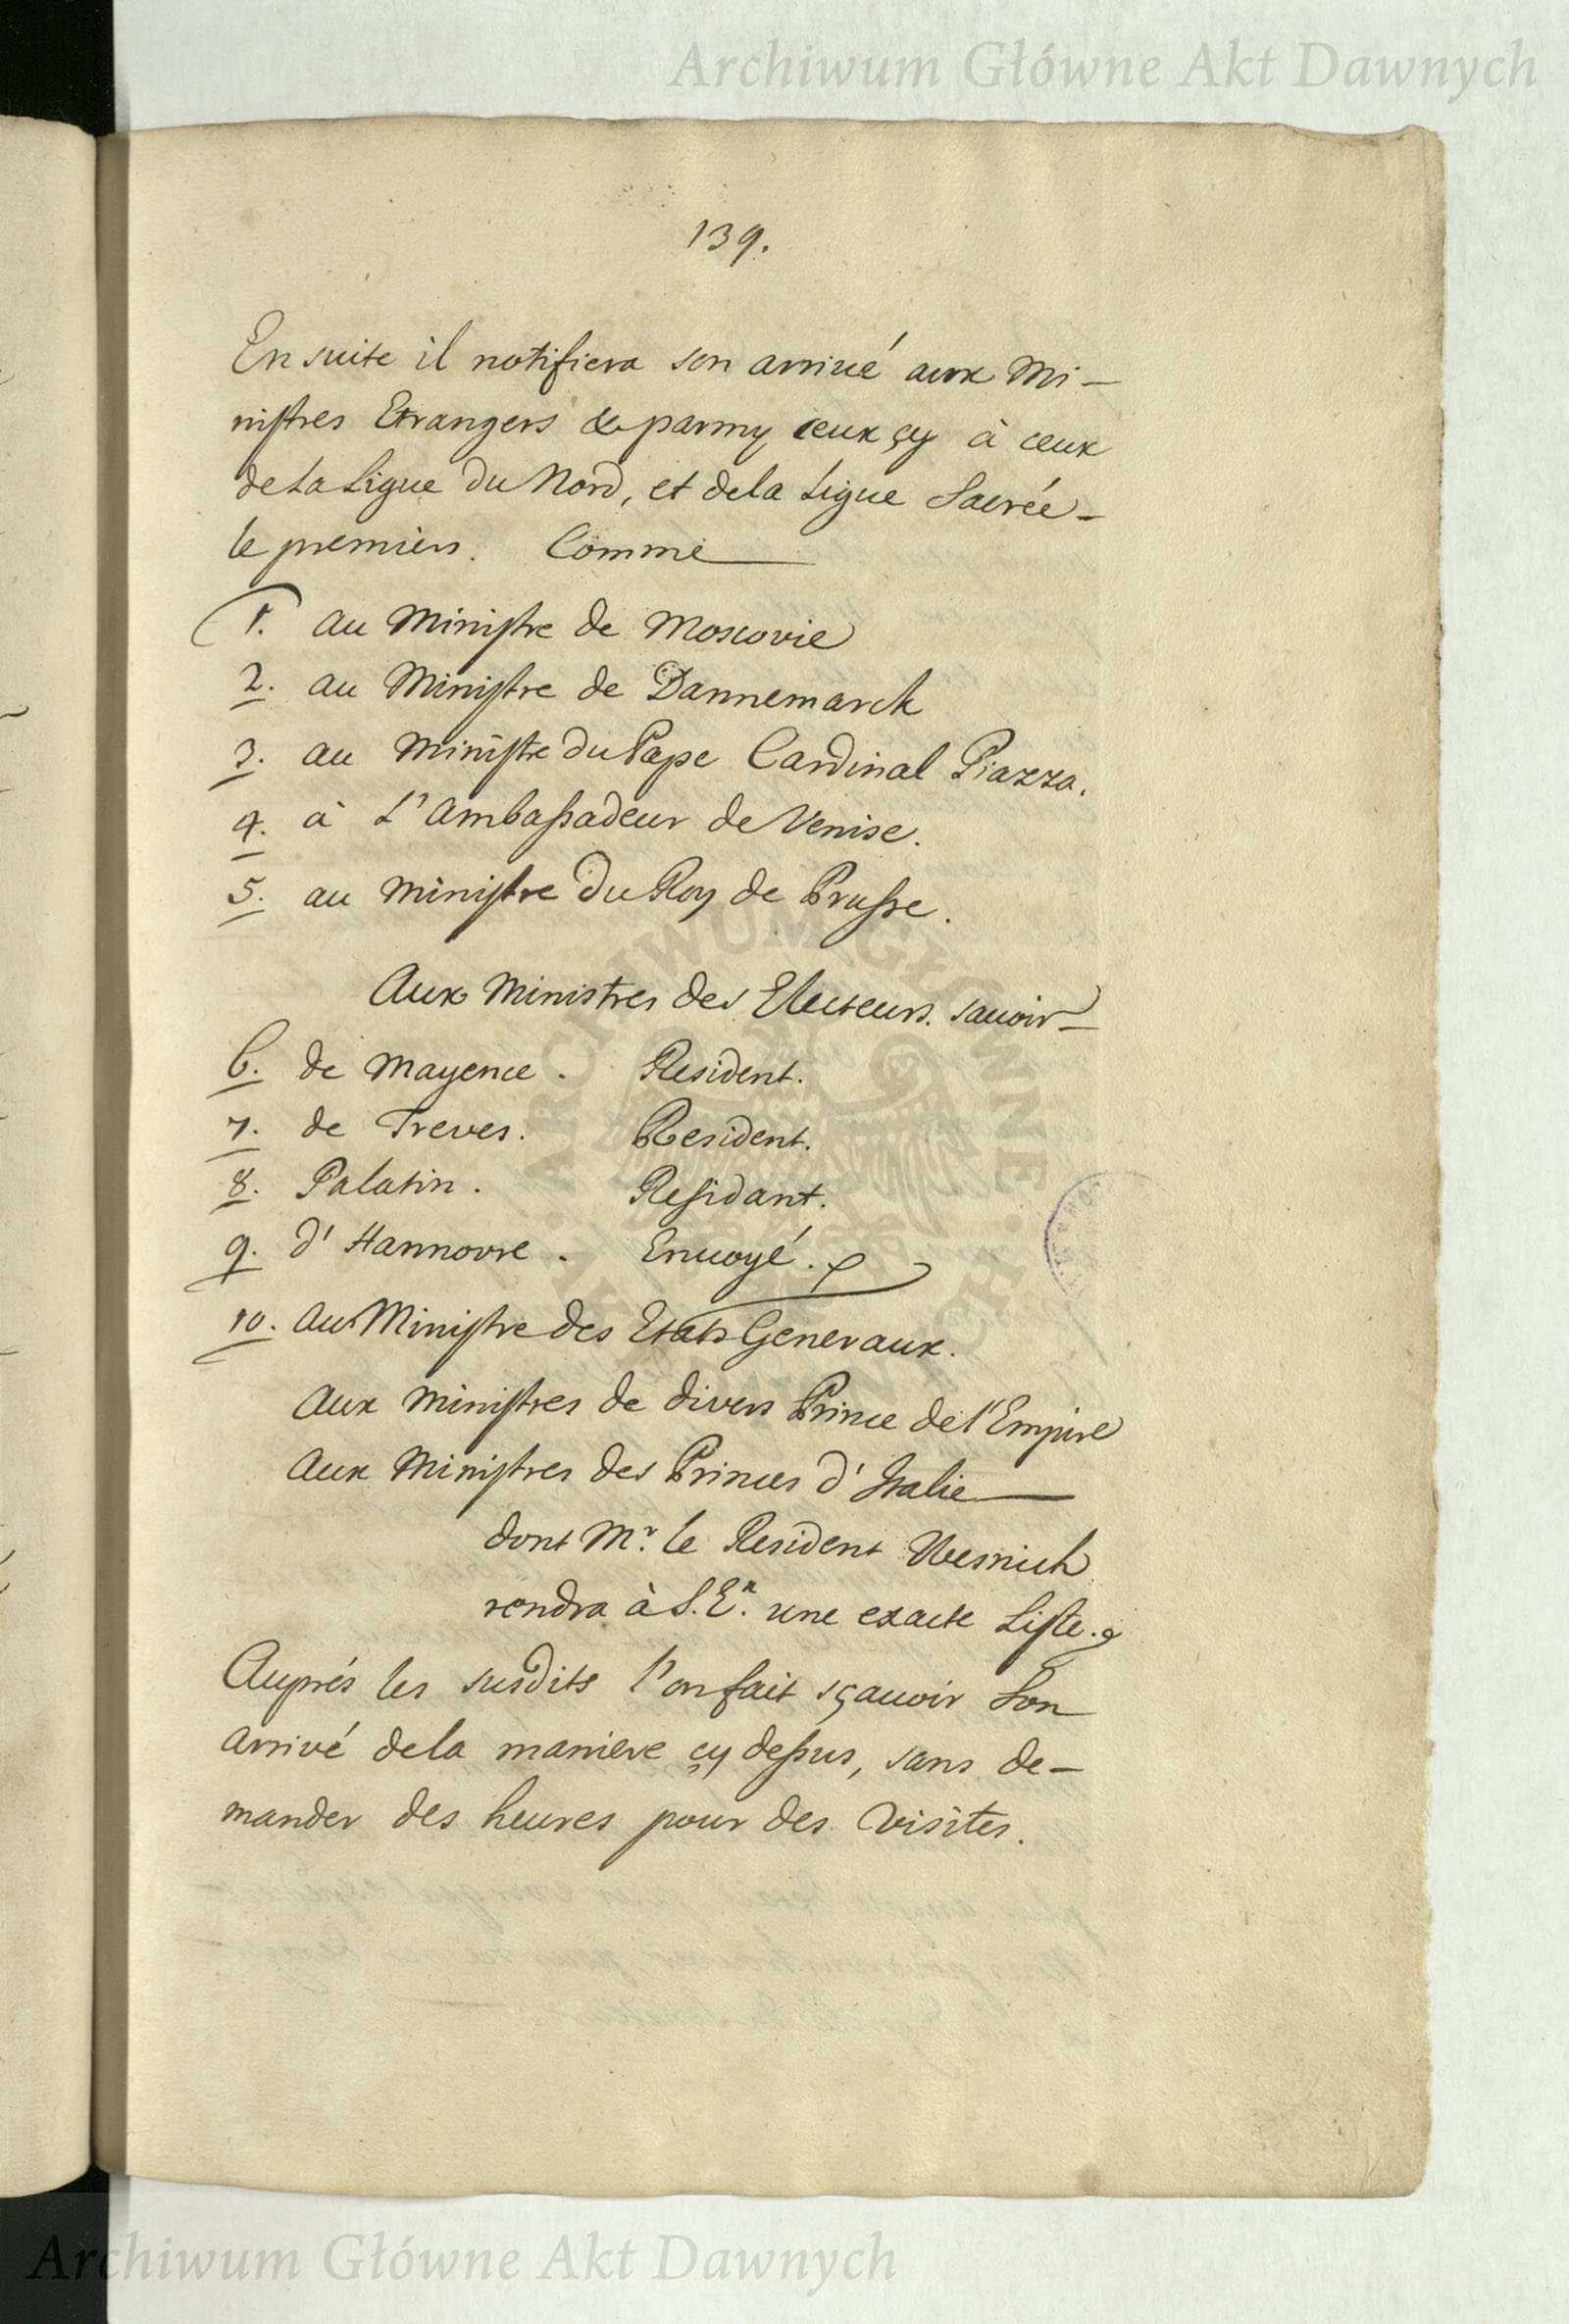 Archiwum Główne Akt Dawnych
139.
En suite il notifiera son arrivé aux Mi-
nistres Etrangers & parmy ceux çy à ceux
de la Ligue du Nord, et de la Ligue Sacrée-
le premiers. Comme
1. au Ministre de Moscovie
2. au Ministre de Dannemarck
3. au Ministre du Pape Cardinal Piazza.
4. à L'Ambassadeur de Venise.
5. au Ministre du Roy de Prusse.
Aux Ministres des Electeurs. savoir-
6. de Mayence. Resident.
7. de Treves. Resident.
8. Palatin. Residant.
9. d'Hannovre. Envoyé.
10. au Ministre des Etats Generaux.
Aux Ministres de divers Prince de l'Empire
Aux Ministres des Princes d'Italie
dont Mr. le Resident
rendra à S. E. une exacte Liste.
Auprés les susdits l'on fait sçauoir Son
arrivé de la maniere çy dessus, sans de-
mander des heures pour des Visites.
ARCHIWUM GŁÓWNE AKT DAWNYCH
Archiwum Główne Akt Dawnych